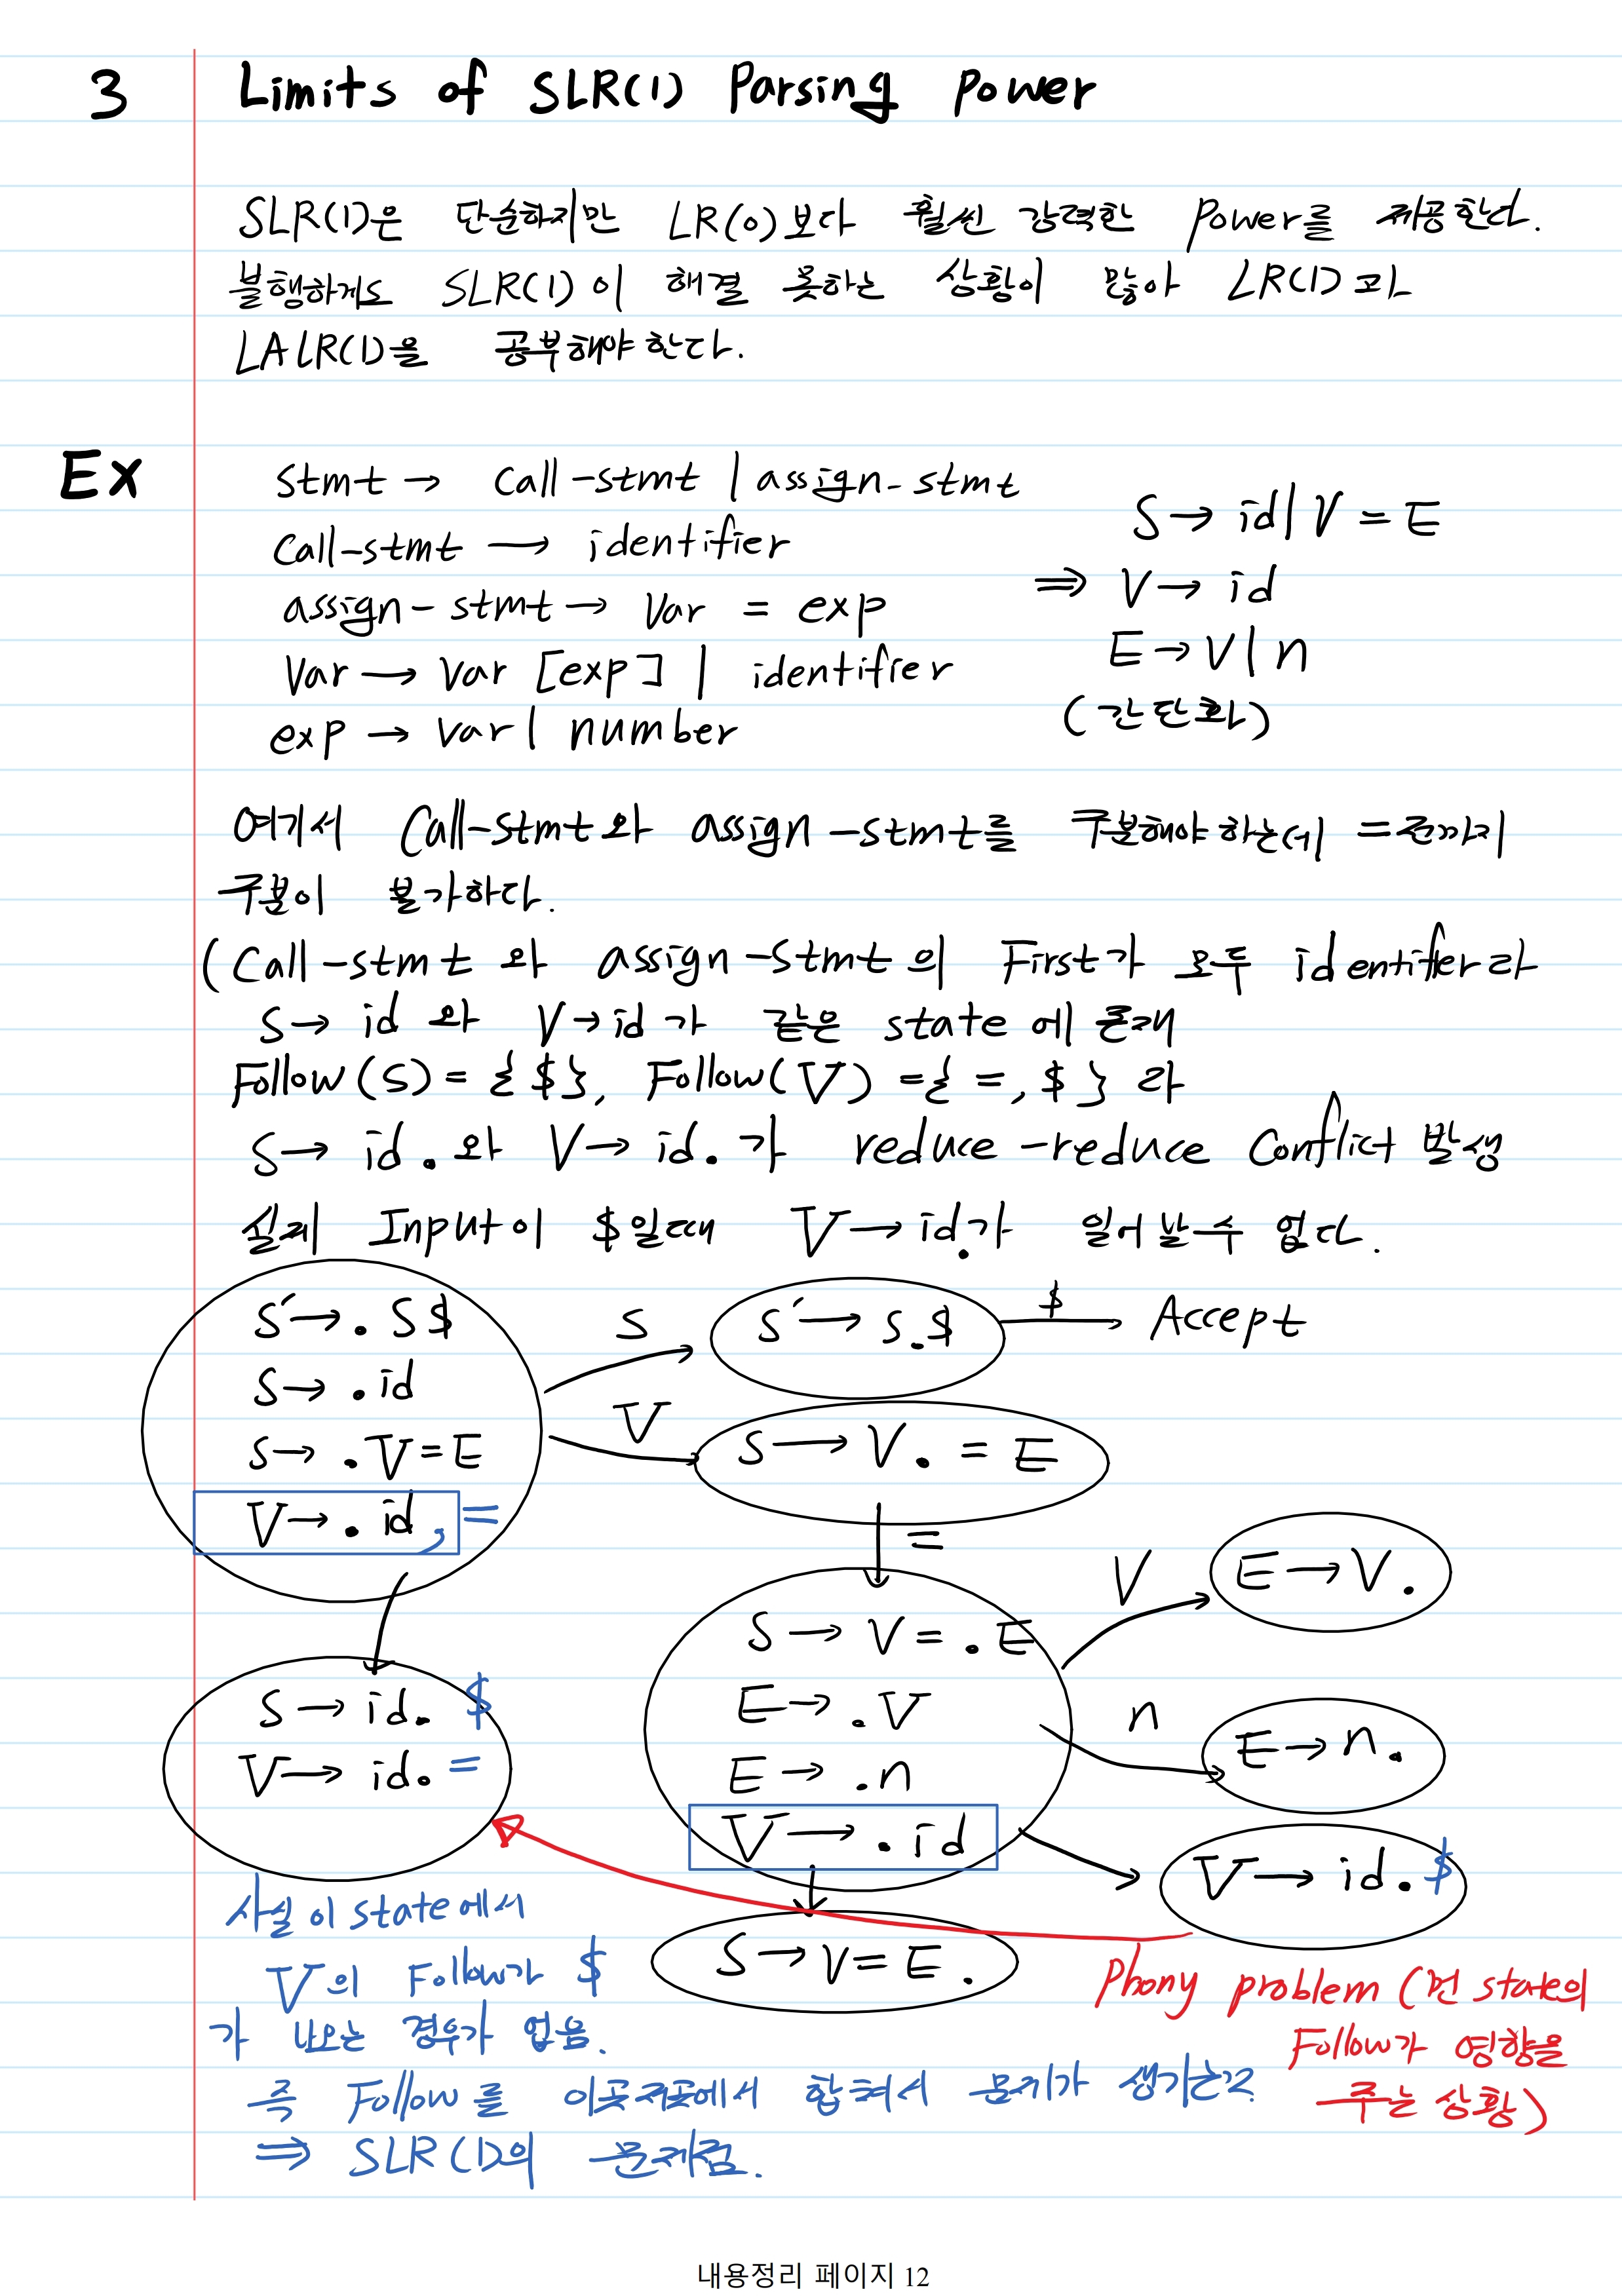 3 Limits of SLR(1) Parsing Power
SLR(1)은 단순하지만 LR(0)보다 훨씬 강력한 Power를 제공한다.
불행하게도 SLR(1)이 해결 못하는 상황이 많아 LR(1)과
LALR(1)을 공부해야 한다.
Ex
stmt → call-stmt | assign-stmt
call-stmt → identifier
assign-stmt → var = exp
Var → var [exp] | identifier
exp → var | number
S → id | V = E
⇒ V → id
E → V | n
(간단화)
여기서 Call-stmt와 assign-stmt를 구분해야 하는데 =전까지
구분이 불가하다.
(Call-stmt 와 assign-stmt 의 First가 모두 identifier라
S → id 와 V → id 가 같은 state 에 존재
Follow(S) = {$}, Follow(V) = {=, $} 라
S → id. 와 V → id. 가 reduce-reduce Conflict 발생
실제 Input이 $일때 V → id.가 일어날 수 없다.
S' → . S $
S → . id
S → . V = E
V → . id , =
S
S' → S . $
$
Accept
V
S → V . = E
=
S → id. $
V → id. =
S → V = . E
E → . V
E → . n
V → . id
V
E → V .
n
E → n .
V → id. $
S → V = E .
사실 이 state에서
V의 Follow가 $
가 나오는 경우가 없음.
즉 Follow를 이곳저곳에서 합쳐서 문제가 생기는것
⇒ SLR(1)의 문제점.
Phony problem (먼 state의
Follow가 영향을
주는 상황)
내용정리 페이지 12